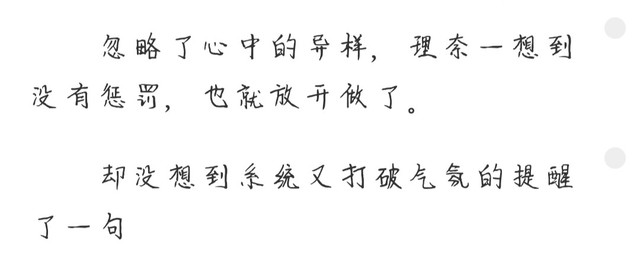 忽略了心中的异样，理奈一想到
没有惩罚，也就放开做了。
却没想到系统又打破气氛的提醒
了一句